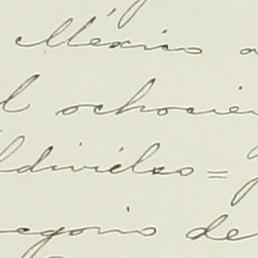 México a
l ochocien
ldivielso=
egorio de